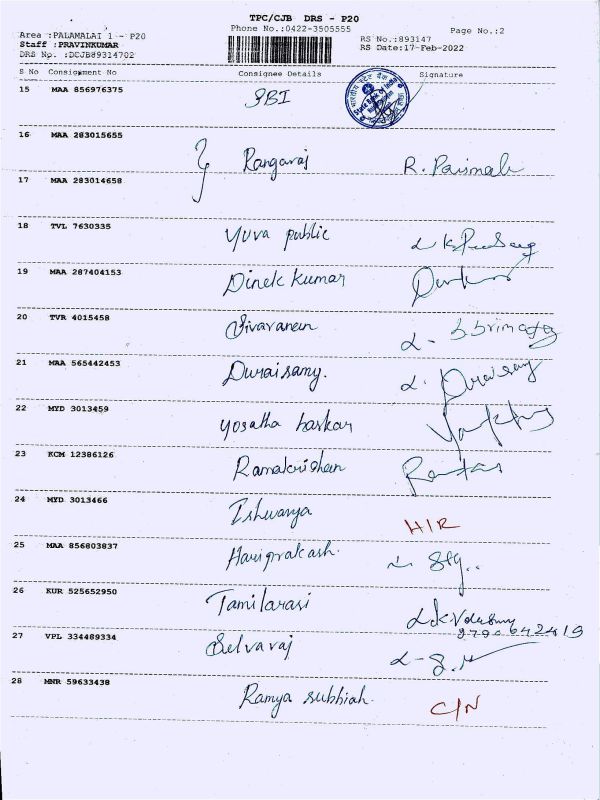 TPC/CJB DRS - P20
Area :PALAMALAI 1 - P20 Phone No.:0422-3505555 Page No.:2
Staff :PRAVINKUMAR RS No.:893147
DRS No. :DCJB89314702 RS Date:17-Feb-2022
S No Consignment No Consignee Details Signature
15 MAA 856976375 SBI
16 MAA 283015655
Rangaraj
17 MAA 283014658
18 TVL 7630335 Yuva public
19 MAA 287404153 Dinek kumar
20 TVR 4015458
21 MAA 565442453 Duraisamy. Duraisamy
22 MYD 3013459 Yosatha baskar
23 KCM 12386126 Ramakrishan
24 MYD 3013466 Ishwarya H/R
25 MAA 856803837 Hariprakash.
26 KUR 525652950 Tamilarasi
27 VPL 334489334 Selvaraj
28 MNR 59633438 Ramya subbiah. C/N